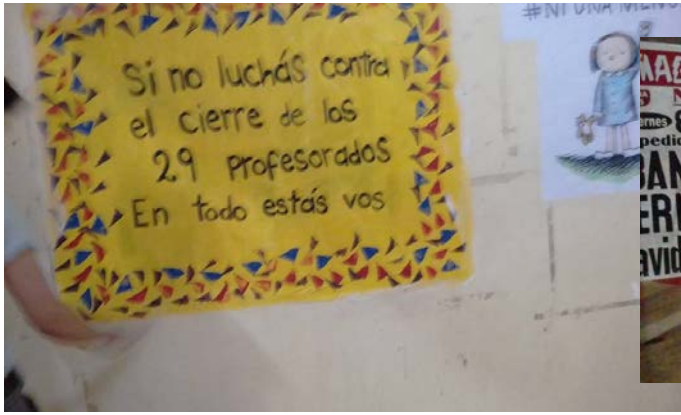 Si no luchás contra
el cierre de los
29 profesorados
En todo estás vos
#NI UNA MENO